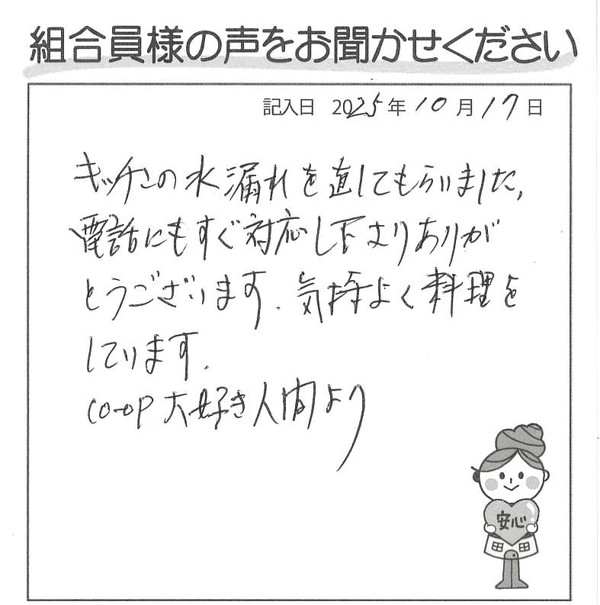 組合員様の声をお聞かせください
記入日 2025年10月17日
キッチンの水漏れを直してもらいました。
電話にもすぐ対応し下さりありが
とうございます。気持よく料理を
しています。
CO-OP大好き人間より
安心